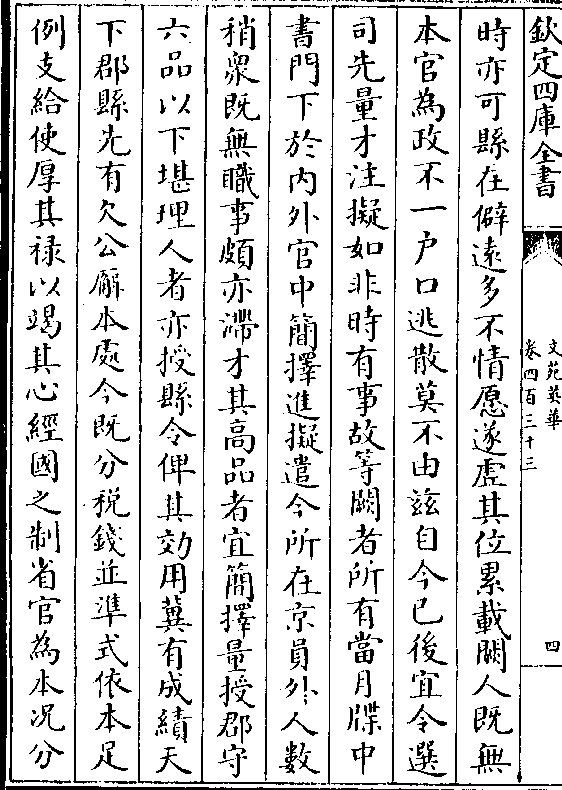 欽定四庫全書
文苑英華
卷四百三十三
四
時亦可縣在僻逺多不情愿遂虚其位累載闕人既無
本官為政不一户口逃散莫不由兹自今已後宜令選
司先量才注擬如非時有事故等闕者所有當月牒中
書門下於内外官中簡擇進擬遣今所在京員外人數
稍衆既無職事頗亦滯才其高品者宜簡擇量授郡守
六品以下堪理人者亦授縣令俾其効用冀有成績天
下郡縣先有欠公廨本處今既分税錢並準式依本足
例支給使厚其禄以竭其心經國之制省官為本况分